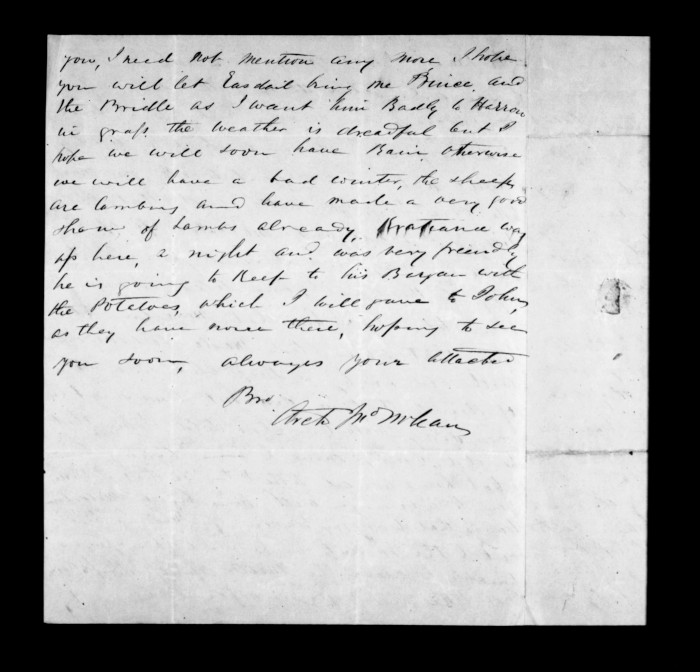 you, I need not mention any more I hope
you will let Easdail bring me Prince and
the Bridle as I want him Badly to Harrow
in grass the weather is dreadful but I
hope we will soon have Rain, otherwise
we will have a bad winter, the sheep
are lambing and have made a very good
show of Lambs already, was
up here, a night and was very friendly
he is going to Keep to his Bargan with
the Potatoes, which I will gave to John,
as they have none there, hoping to see
you soon, always your attached
Bro
Arch McMLean